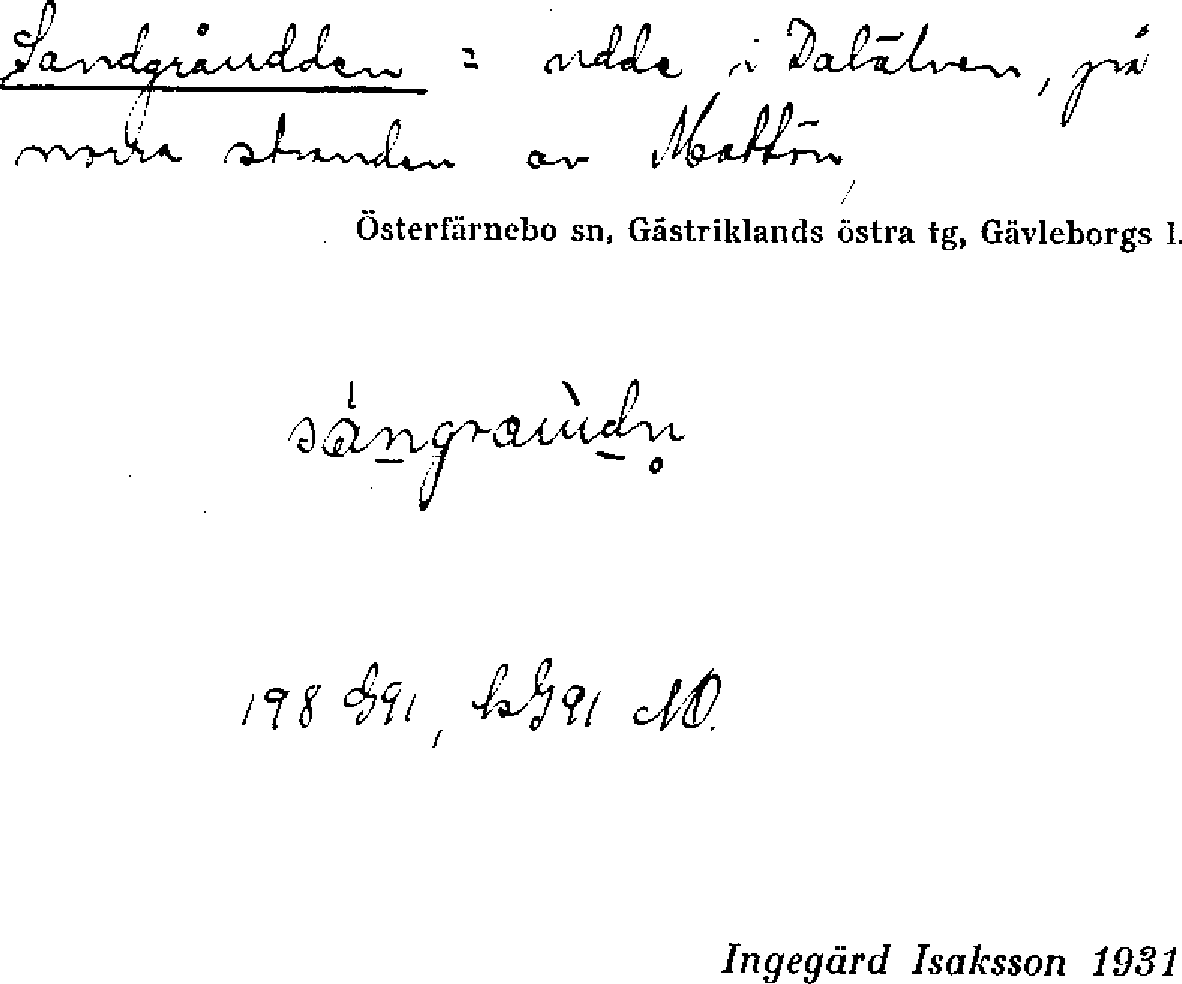 Sandgråudden = udde i Dalälven, på
norra stranden av Mattön,
Österfärnebo sn, Gästriklands östra tg, Gävleborgs l.
198 G91, kG91 NO.
Ingegärd Isaksson 1931